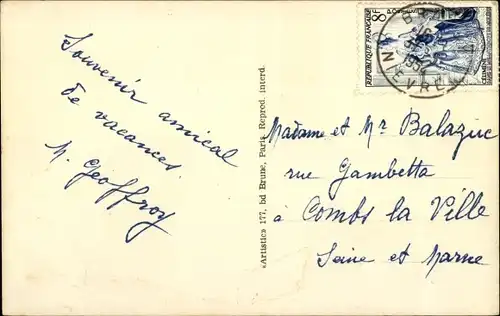 Souvenir amical
de vacances.
M. Geoffroy
«Artistic» 177, bd Brune, Paris Reprod. interd.
8F
REPUBLIQUE FRANÇAISE
NIEVRE
Madame et Mr Balazuc
rue Gambetta
à Combs la Ville
Seine et Marne